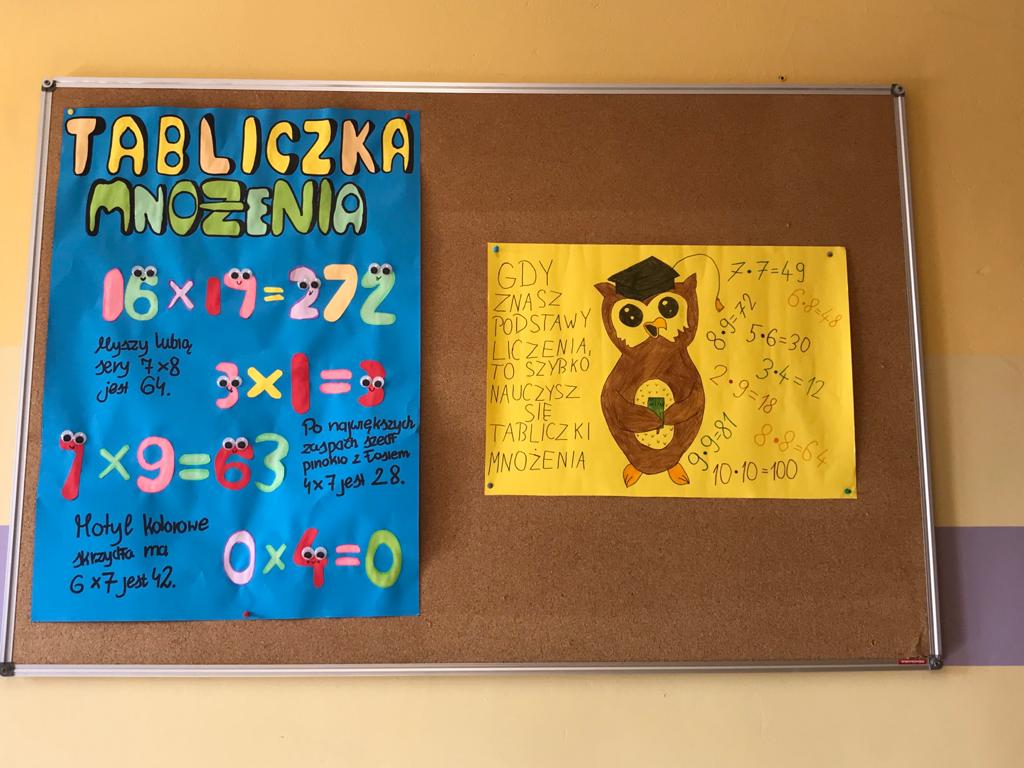 TABLICZKA
MNOŻENIA
16 × 17 = 272
Myszy lubią
sery 7 × 8
jest 64.
3 × 1 = 3
7 × 9 = 63
Po największych
zaspach szedł
pinokio z Łosiem
4 × 7 jest 28.
Motyl kolorowe
skrzydła ma
6 × 7 jest 42.
0 × 4 = 0
GDY
ZNASZ
PODSTAWY
LICZENIA,
TO SZYBKO
NAUCZYSZ
SIĘ
TABLICZKI
MNOŻENIA
7·7=49
6·8=48
8·9=72
5·6=30
3·4=12
2·9=18
8·8=64
9·9=81
10·10=100